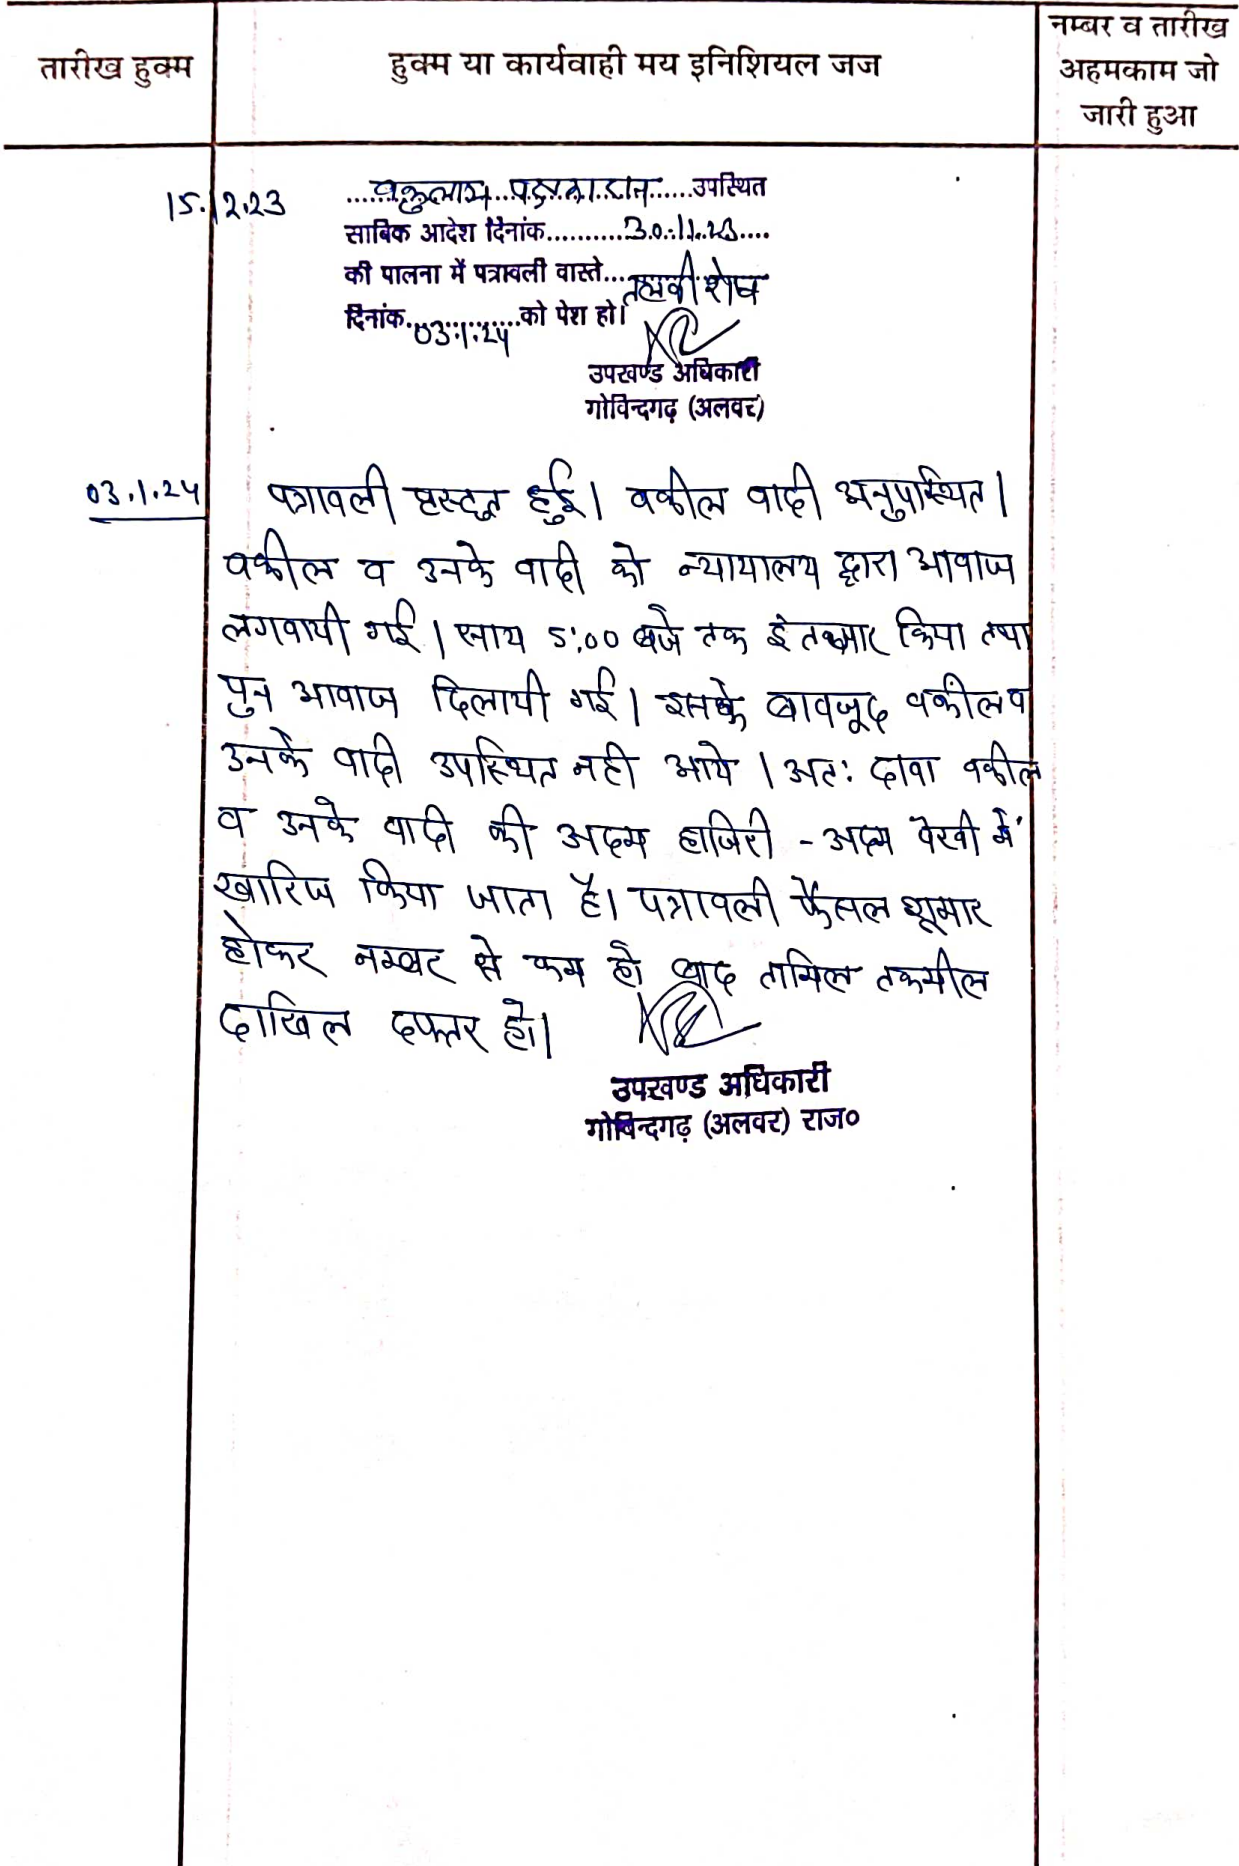 तारीख हुक्म
हुक्म या कार्यवाही मय इनिशियल जज
नम्बर व तारीख
अहमकाम जो
जारी हुआ
15.12.23
उपस्थित
साबिक आदेश दिनांक..........30.11.23....
की पालना में पत्रावली वास्ते... तलबी शेष
दिनांक 03.1.24 को पेश हो।
उपखण्ड अधिकारी
गोविन्दगढ़ (अलवर)
03.1.24
पत्रावली प्रस्तुत हुई। वकील वादी अनुपस्थित।
वकील व उनके वादी को न्यायालय द्वारा आवाज
लगवायी गई। साय 5:00 बजे तक इंतजार किया तथा
पुन आवाज दिलायी गई। इसके बावजूद वकील व
उनके वादी उपस्थित नही आये । अत: दावा वकील
व उनके वादी की अदम हाजिरी - अदम पेरवी में
खारिज किया जाता है। पत्रावली फैसल शूमार
होकर नम्बर से कम हो बाद तामिल तकमील
दाखिल दफ्तर हो।
उपखण्ड अधिकारी
गोविन्दगढ़ (अलवर) राज०